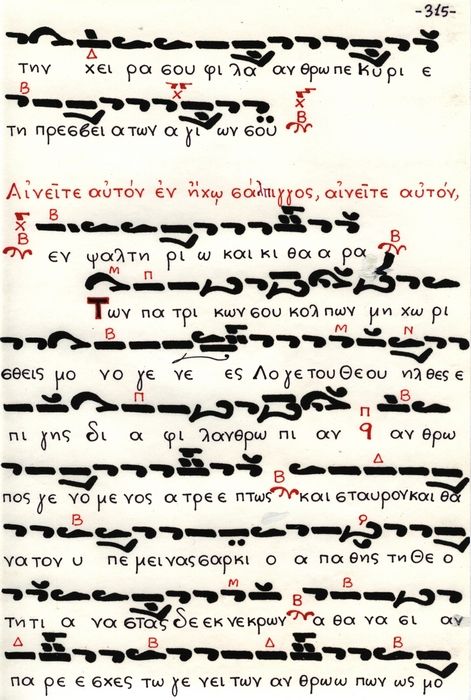 -315-
την χει ρα σου φι λα αν θρω πε Κυ ρι ε
τη πρεσβει α των α γι ων σου
Αἰνεῖτε αὐτόν ἐν ἤχῳ σάλπιγγος, αἰνεῖτε αὐτόν,
εν ψαλτη ρι ω και κι θα α ρα
Των πα τρι κων σου κολ πων μη χω ρι
σθεις μο νο γε νε ες Λο γε του Θε ου ηλ θες ε
πι γης δι α φι λανθρω πι αν αν θρω
πος γε νο με νος α τρε ε πτως και σταυρον και θα
να τον υ πε μει νας σαρ κι ο α πα θης τη Θε ο
τη τι α να στας δε εκ νε κρων α θα να σι αν
πα ρε ε σχες τω γε νει των αν θρω ω πων ως μο